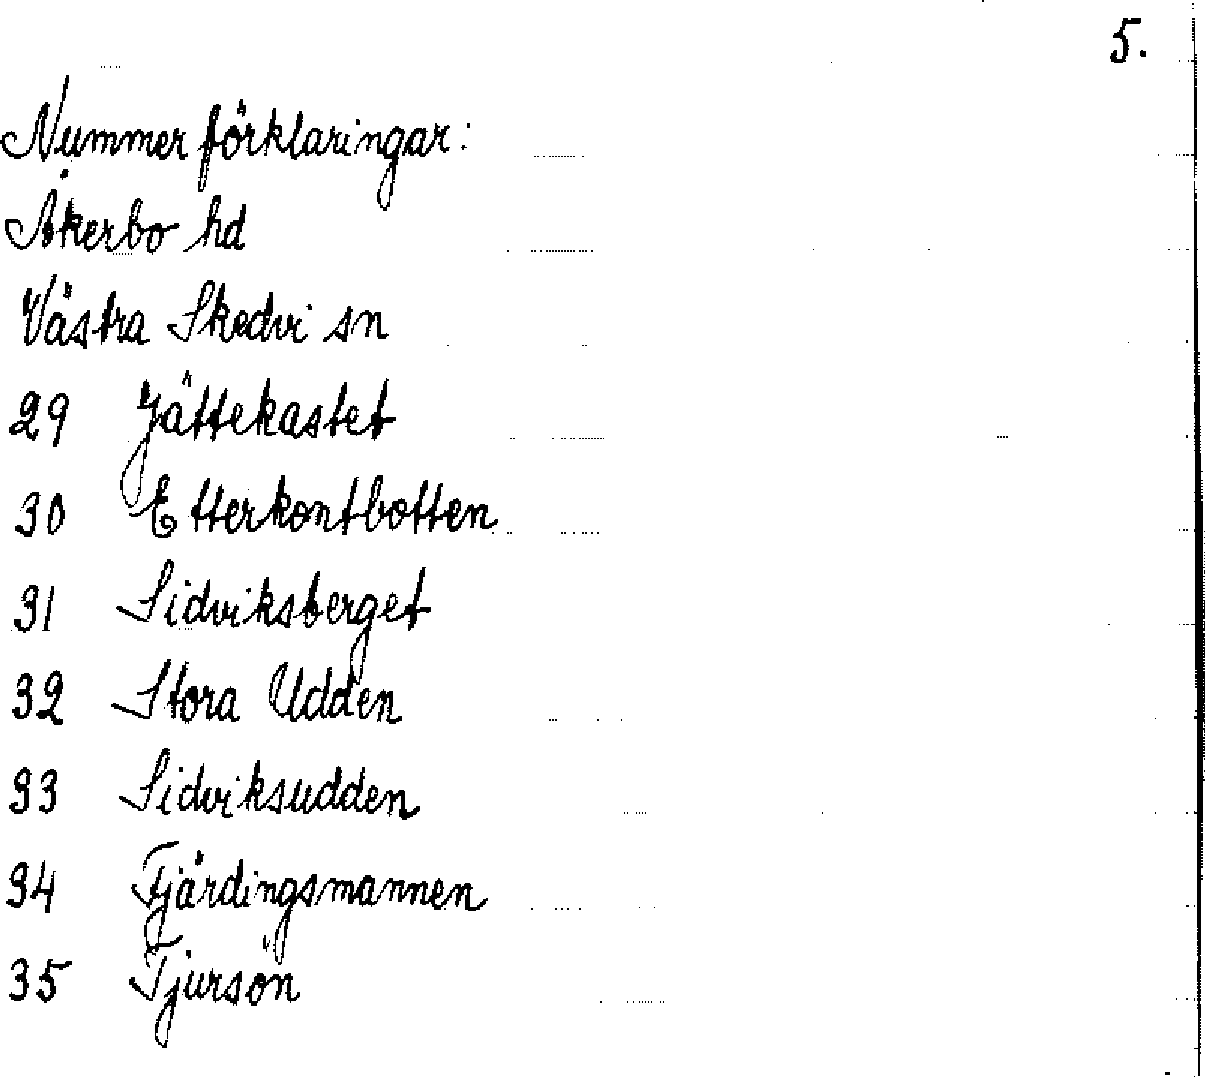 5.
Nummerförklaringar:
Åkerbo hd
Västra Skedvi sn
29 Jättekastet
30 Etterkontbotten
31 Sidviksberget
32 Stora Udden
33 Sidviksudden
34 Fjärdingsmannen
35 Tjursön